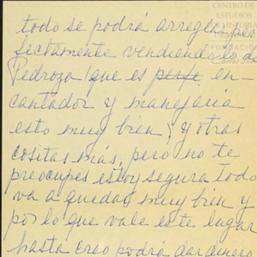 CENTRO DE
ESTUDIOS
todo se podrá arreglar per
fectamente vendiendo lo de
Pedroza que es perfe en-
cantador y manejaria
esto muy bien, y otras
cositas más, pero no te
preocupes estoy segura todo
va a quedar muy bien y
por lo que vale este lugar
hasta creo podrá dar dinero